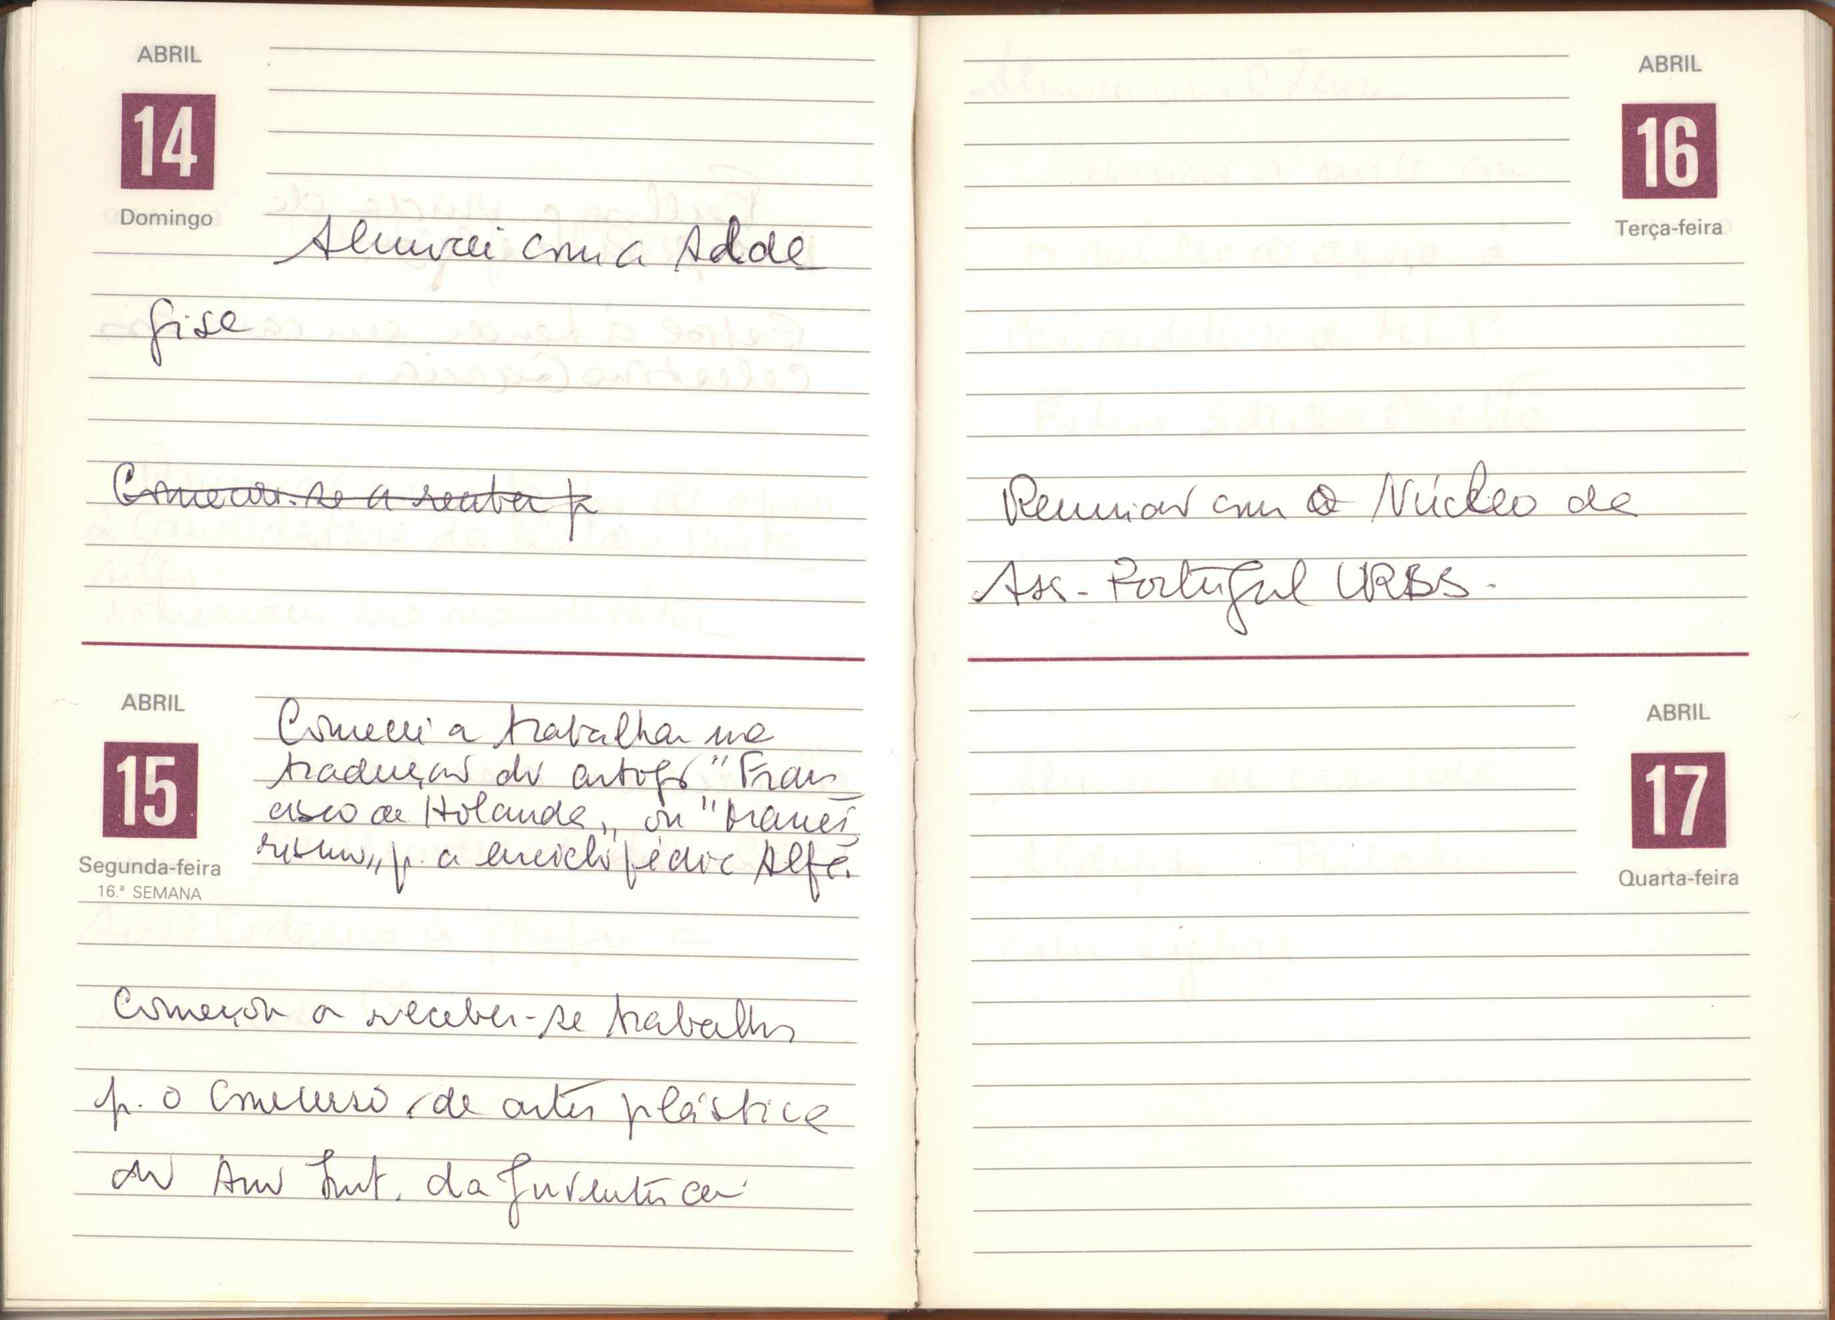 ABRIL
14
Domingo
Almocei com a Adal
gisa
Começou-se a receber p
ABRIL
15
Segunda-feira
16.ª SEMANA
Comecei a trabalhar na
tradução do artigo "Fran
cisco de Holanda", ou "Manei
rismo", p. a enciclopédia Alfa.
Começou a receber-se trabalhos
p. o Concurso de artes plásticas
do Ano Int. da Juventude
ABRIL
16
Terça-feira
Reunião com o Núcleo da
Ass. Portugal URSS.
ABRIL
17
Quarta-feira